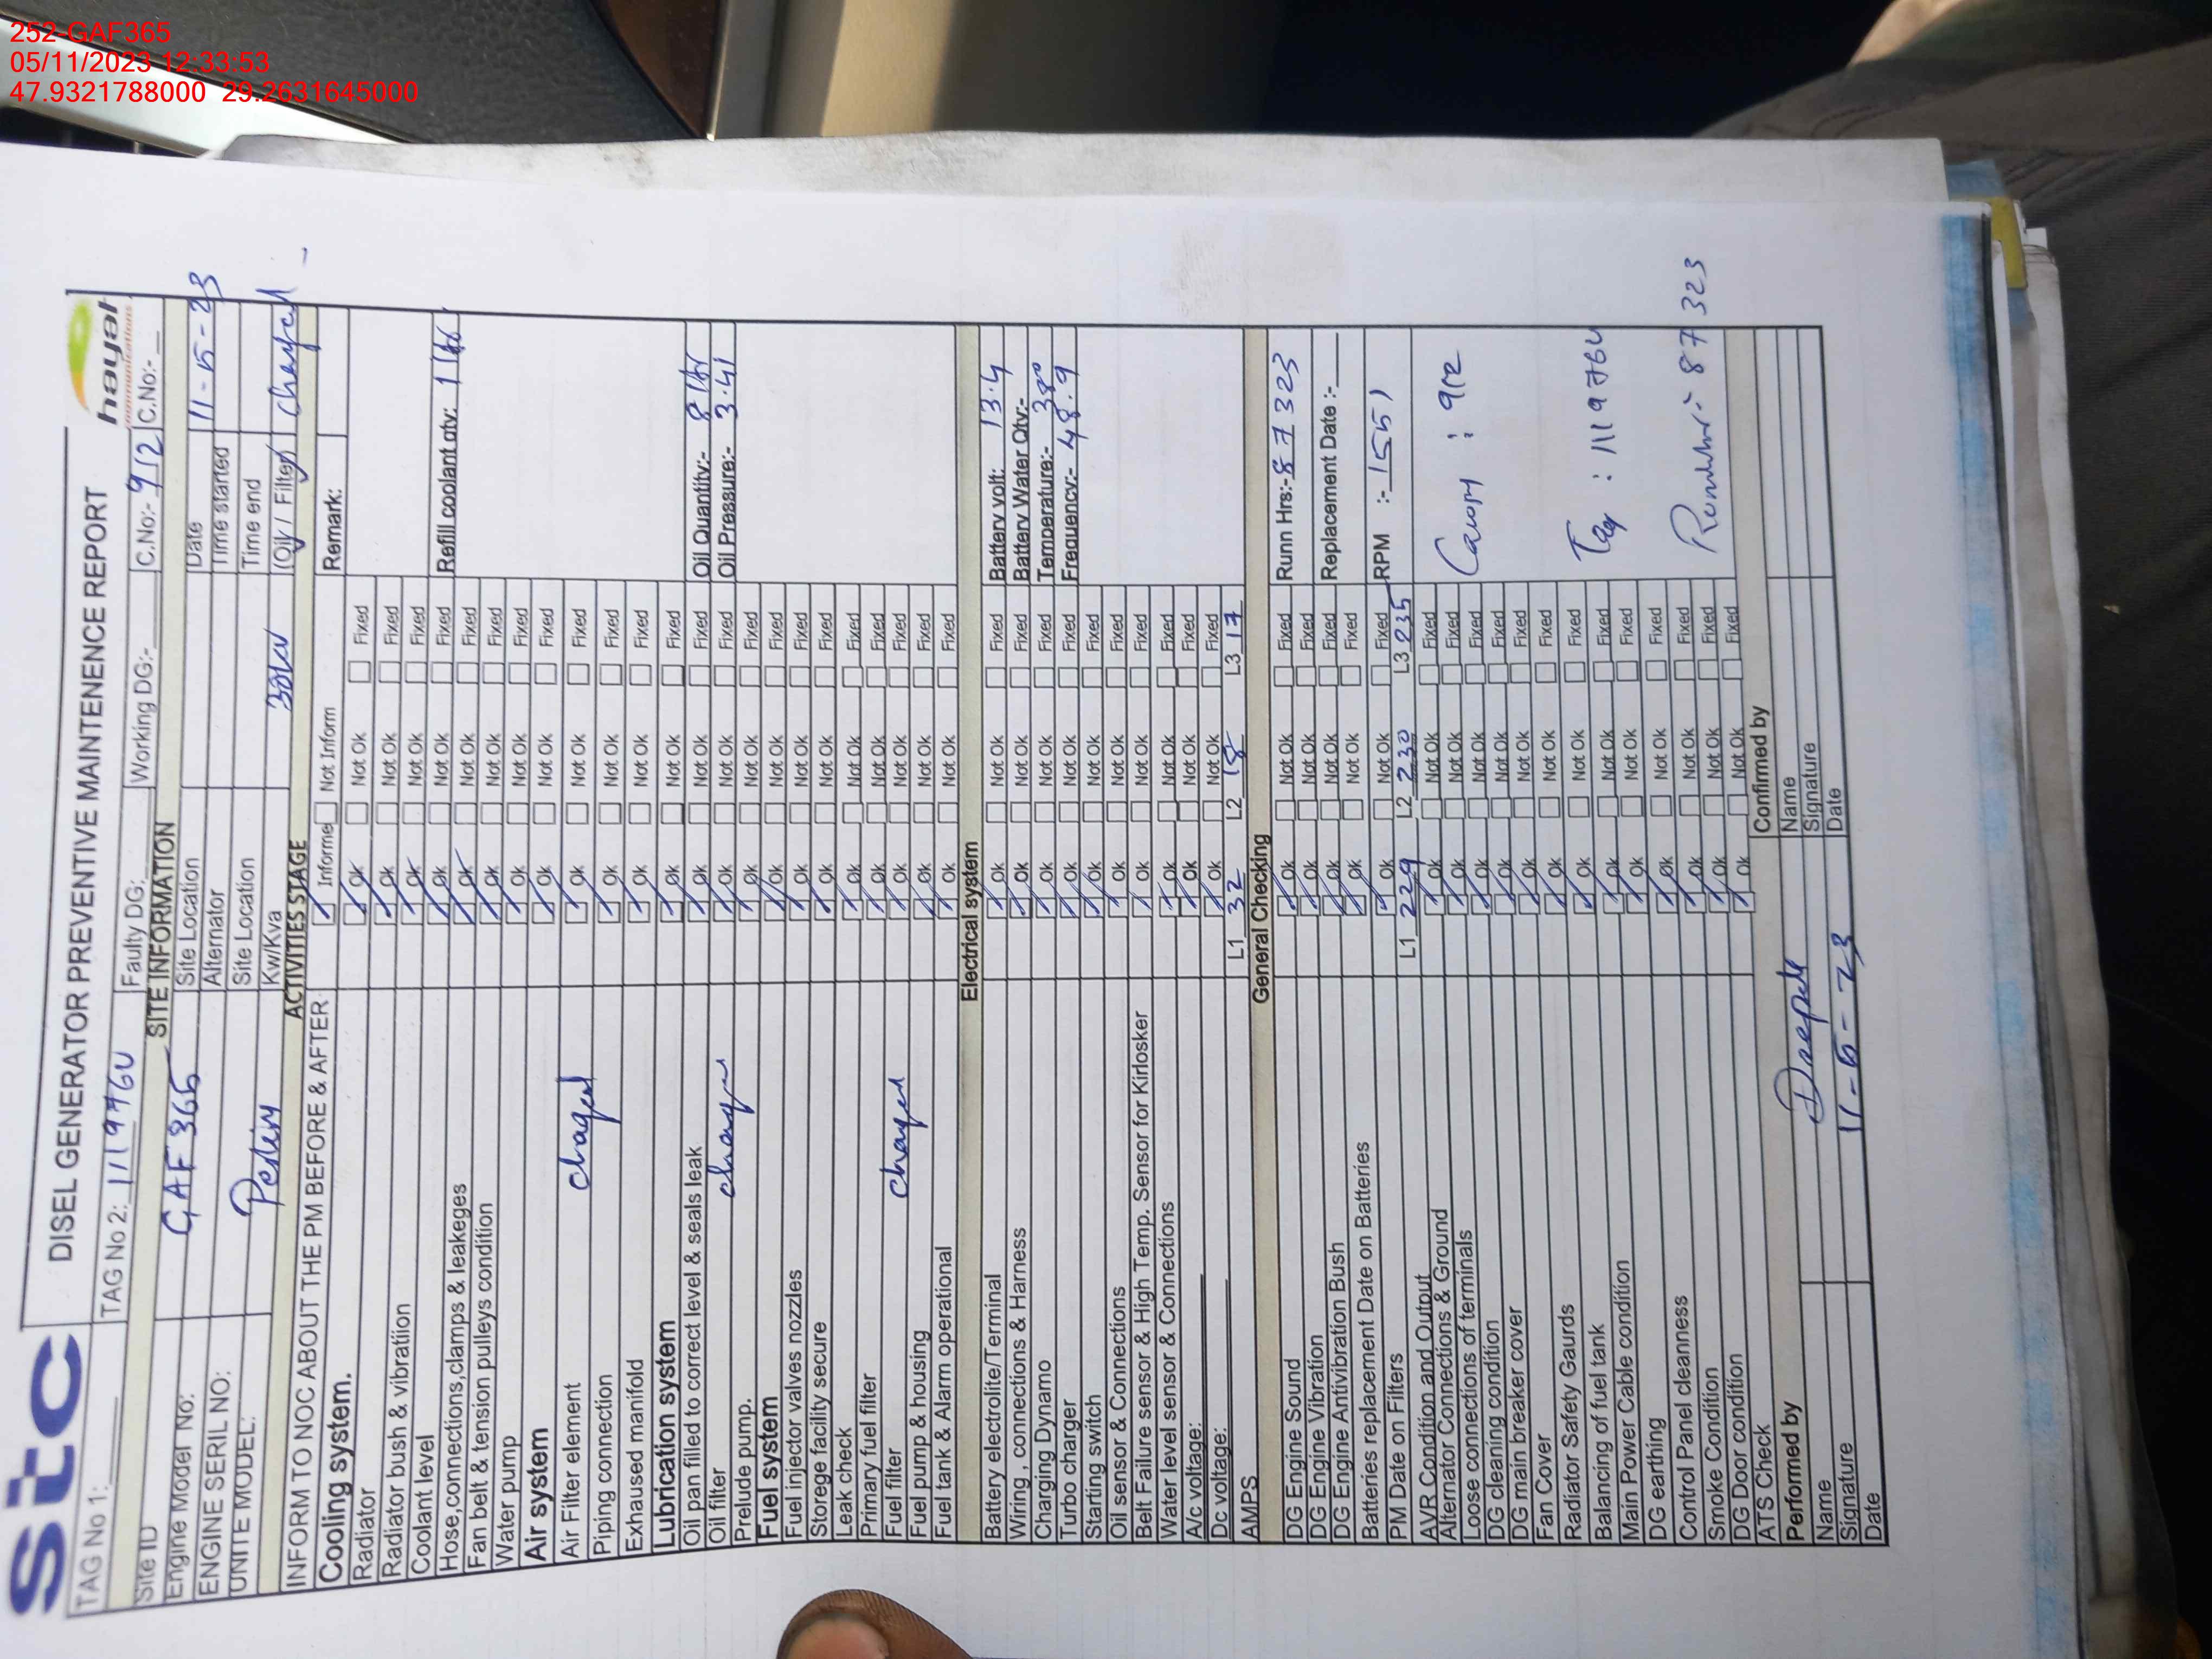 252-GAF365
05/11/2023 12:33:53
47.9321788000 29.2631645000
stc
DISEL GENERATOR PREVENTIVE MAINTENENCE REPORT
hayat
communications
TAG No 1: TAG No 2: 119976U Faulty DG: Working DG:- C.No:- 912 C.No:-
SITE INFORMATION
Site ID GAF 365 Site Location Date 11-05-23
Engine Model No: Alternator Time started
ENGINE SERIL NO: Site Location Time end
UNITE MODEL: Kw/Kva 30kv (Oil / Filter)
ACTIVITIES STAGE
INFORM TO NOC ABOUT THE PM BEFORE & AFTER Informe Not Inform Remark:
Cooling system.
Radiator Ok Not Ok Fixed
Radiator bush & vibratiion Ok Not Ok Fixed
Coolant level Ok Not Ok Fixed
Hose,connections,clamps & leakeges Ok Not Ok Fixed Refill coolant qty: 1 ltr
Fan belt & tension pulleys condition Ok Not Ok Fixed
Water pump Ok Not Ok Fixed
Air system
Air Filter element chaged Ok Not Ok Fixed
Piping connection Ok Not Ok Fixed
Exhaused manifold Ok Not Ok Fixed
Lubrication system
Oil pan filled to correct level & seals leak Ok Not Ok Fixed Oil Quantity:- 8 ltr
Oil filter Ok Not Ok Fixed Oil Pressure:- 3.41
Prelude pump. Ok Not Ok Fixed
Fuel system
Fuel injector valves nozzles Ok Not Ok Fixed
Storege facility secure Ok Not Ok Fixed
Leak check Ok Not Ok Fixed
Primary fuel filter Ok Not Ok Fixed
Fuel filter chaged Ok Not Ok Fixed
Fuel pump & housing Ok Not Ok Fixed
Fuel tank & Alarm operational Ok Not Ok Fixed
Electrical system
Battery electrolite/Terminal Ok Not Ok Fixed Battery volt: 13.4
Wiring , connections & Harness Ok Not Ok Fixed Battery Water Qty:-
Charging Dynamo Ok Not Ok Fixed Temperature:- 38°
Turbo charger Ok Not Ok Fixed Frequency:- 48.9
Starting switch Ok Not Ok Fixed
Oil sensor & Connections Ok Not Ok Fixed
Belt Failure sensor & High Temp. Sensor for Kirlosker Ok Not Ok Fixed
Water level sensor & Connections Ok Not Ok Fixed
A/c voltage: Ok Not Ok Fixed
Dc voltage: Ok Not Ok Fixed
AMPS L1 32 L2 18 L3 17
General Checking
DG Engine Sound Ok Not Ok Fixed Runn Hrs:- 87323
DG Engine Vibration Ok Not Ok Fixed
DG Engine Antivibration Bush Ok Not Ok Fixed Replacement Date :-
Batteries replacement Date on Batteries Ok Not Ok Fixed
PM Date on Filters Ok Not Ok Fixed RPM :- 1551
AVR Condition and Output L1 229 L2 230 L3 235
Alternator Connections & Ground Ok Not Ok Fixed
Loose connections of terminals Ok Not Ok Fixed : 912
DG cleaning condition Ok Not Ok Fixed
DG main breaker cover Ok Not Ok Fixed
Fan Cover Ok Not Ok Fixed
Radiator Safety Gaurds Ok Not Ok Fixed
Balancing of fuel tank Ok Not Ok Fixed Tag : 119976U
Main Power Cable condition Ok Not Ok Fixed
DG earthing Ok Not Ok Fixed
Control Panel cleanness Ok Not Ok Fixed 87323
Smoke Condition Ok Not Ok Fixed
DG Door condition Ok Not Ok Fixed
ATS Check
Performed by Confirmed by
Name Name
Signature Signature
Date 11-5-23 Date